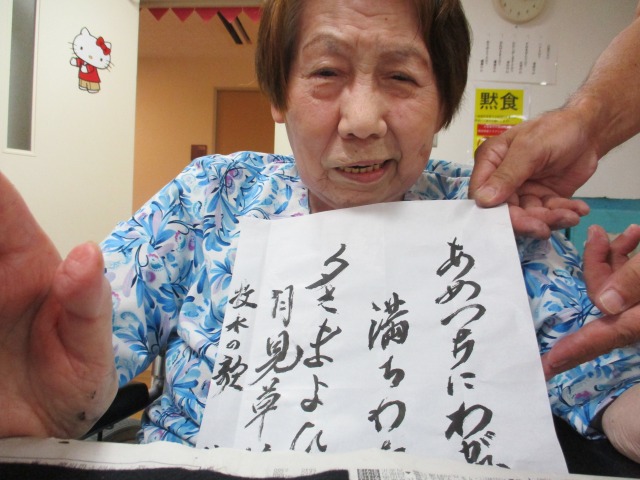 あめつちにわが
満ちわ
夕さまよひ
月見草
牧水の歌
黙食